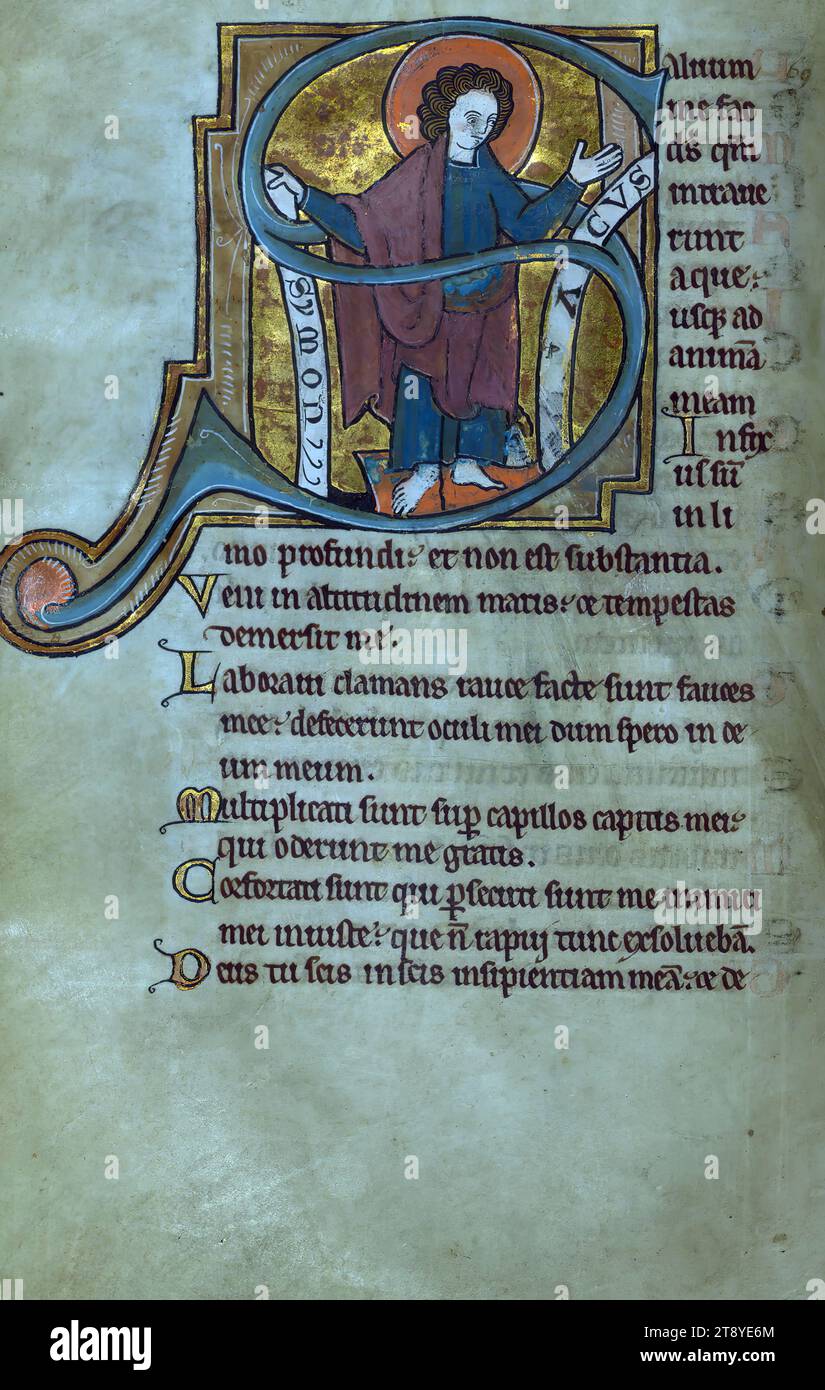 SYMON
CVS
V
Aluum
me fac
ds qm̄
intraue
runt
aque:
usq; ad
animā
meam
Infix
us sū
in li
mo profundi: et non est substantia.
Veni in altitudinem maris: & tempestas
demersit me.
Laboraui clamans rauce facte sunt fauces
mee: defecerunt oculi mei dum spero in de
um meum.
Multiplicati sunt sup̄ capillos capitis mei:
qui oderunt me gratis.
Cōfortati sunt qui p̄secuti sunt me inimici
mei iniuste: que n̄ rapuj tunc exsoluebā.
Deus tu scis inscis insipientiam meā: & de
alamy
Image ID: 2T8YE6M
www.alamy.com